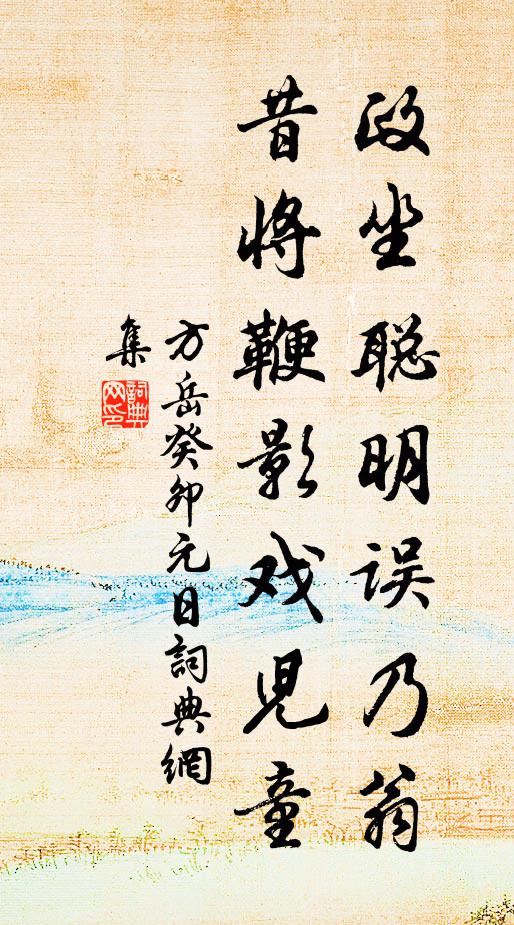 政坐聪明误乃翁
昔将鞭影戏児童
方岳癸卯元日詞典網
集
詞典
网印